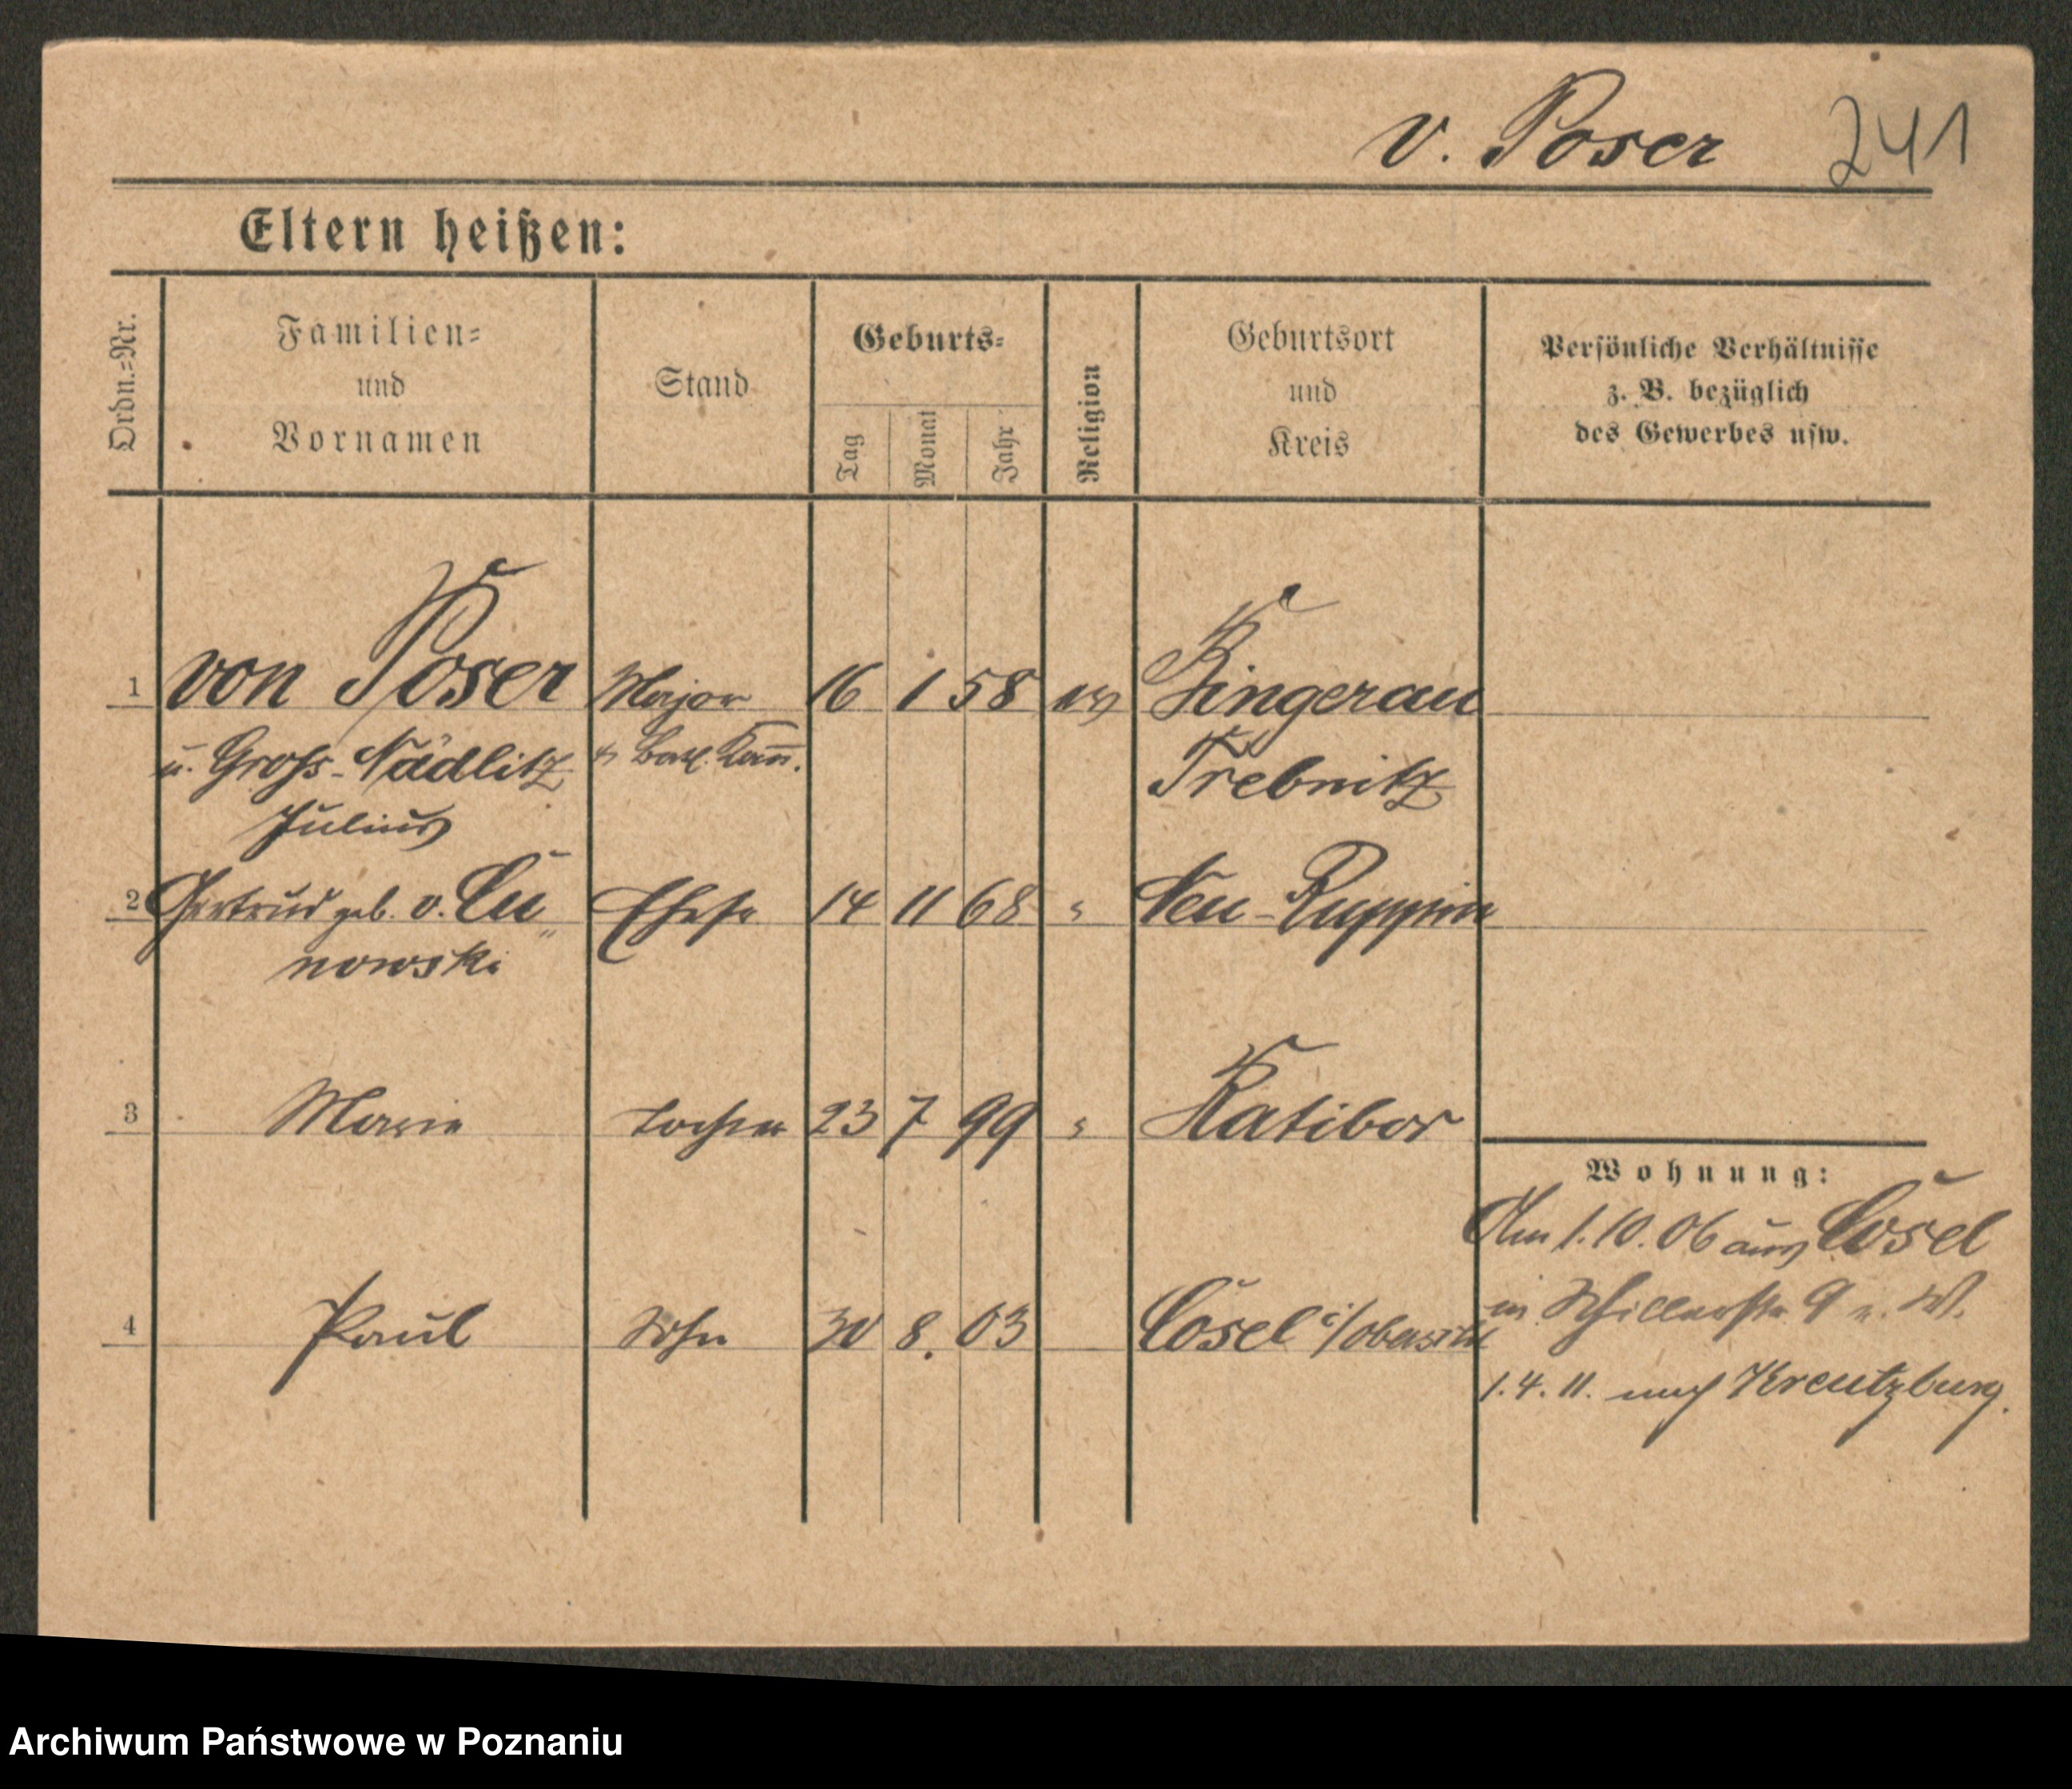 v. Poser 241
Eltern heißen:
Ordn.=Nr.
Familien=
und
Vornamen
Stand
Geburts=
Tag
Monat
Jahr
Religion
Geburtsort
und
Kreis
Persönliche Verhältnisse
z. B. bezüglich
des Gewerbes usw.
1 von Poser Major 16 1 58 ev Bingerau
u. Gross-Nädlitz u. Batl. Kom̄. Trebnitz
Julius
2 Gertrud geb. v. Cu„ Ehefr 14 11 68 " Neu-Ruppin
nowski
3 Marie Tochter 23 7 99 " Ratibor
Wohnung:
Am 1.10.06 aus Cosel
4 Paul Sohn 30 8. 03 Cosel i/Oberschl
in Schillerstr 9 u. W.
1.4.11. nach Kreutzburg.
Archiwum Państwowe w Poznaniu